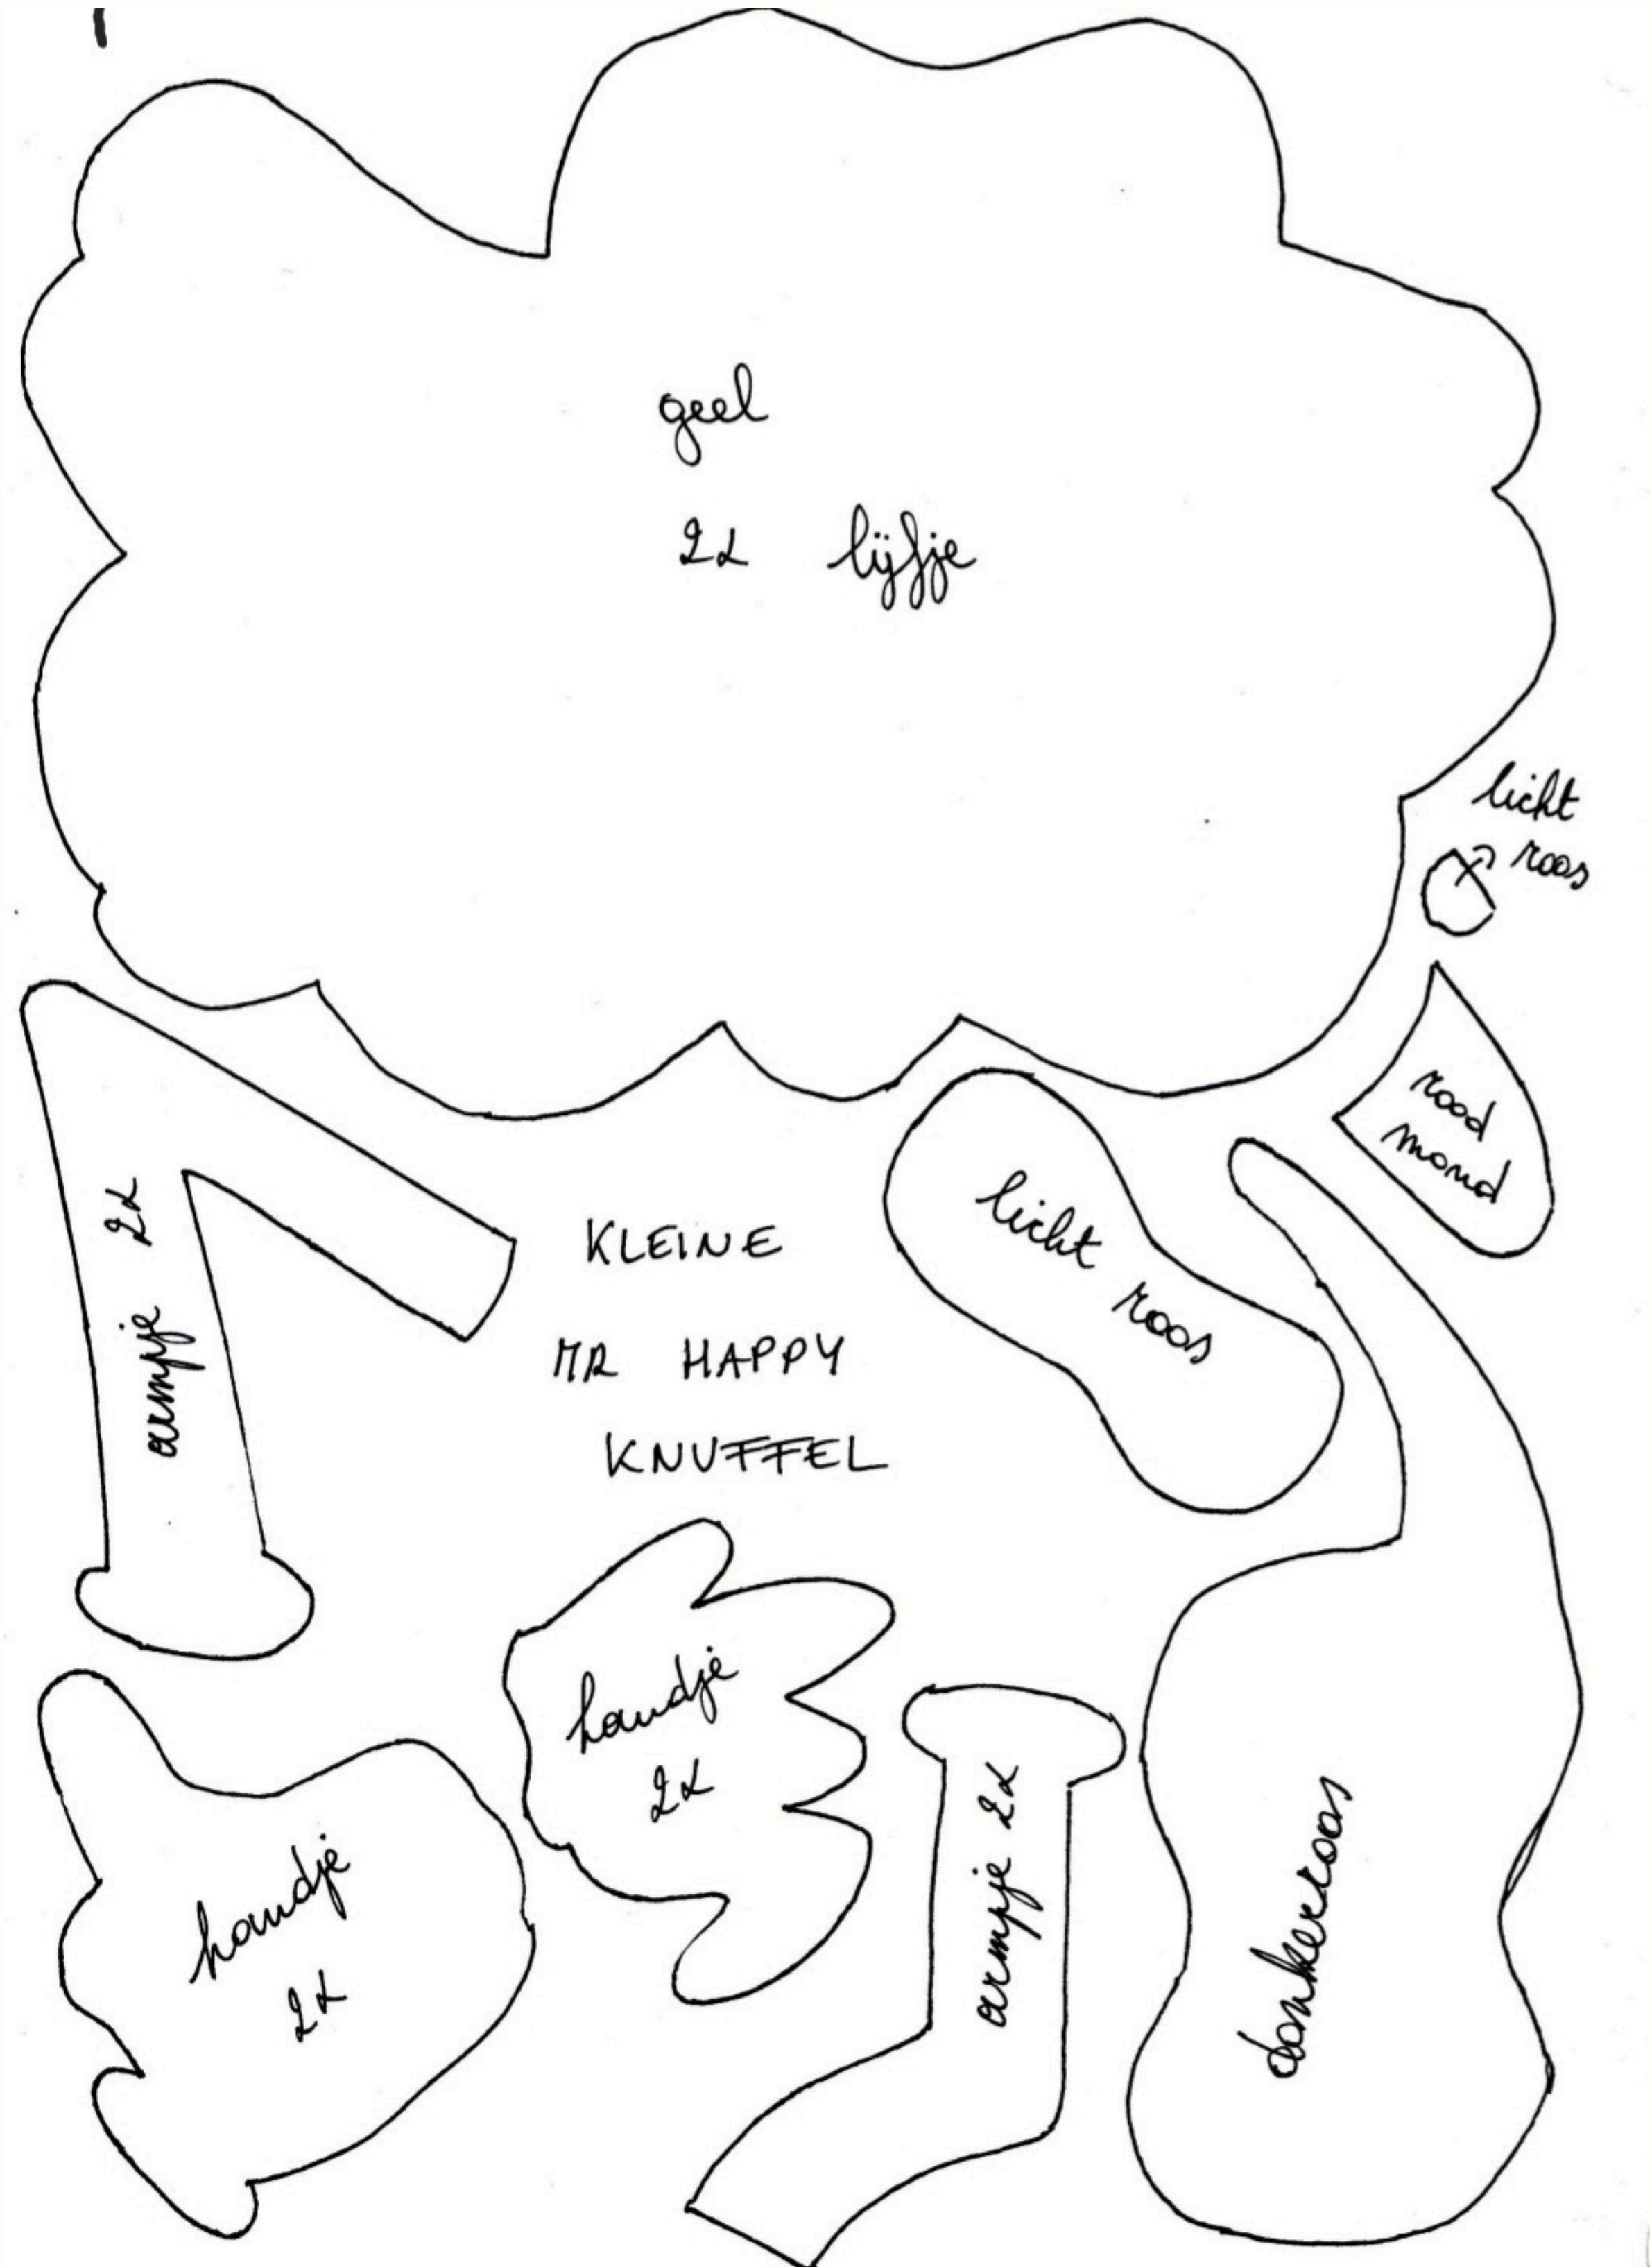 geel
2x lijfje
licht
roos
rood
mond
armpje 2x
KLEINE
MR HAPPY
KNUFFEL
licht roos
handje
2x
handje
2x
armpje 2x
donkerroos